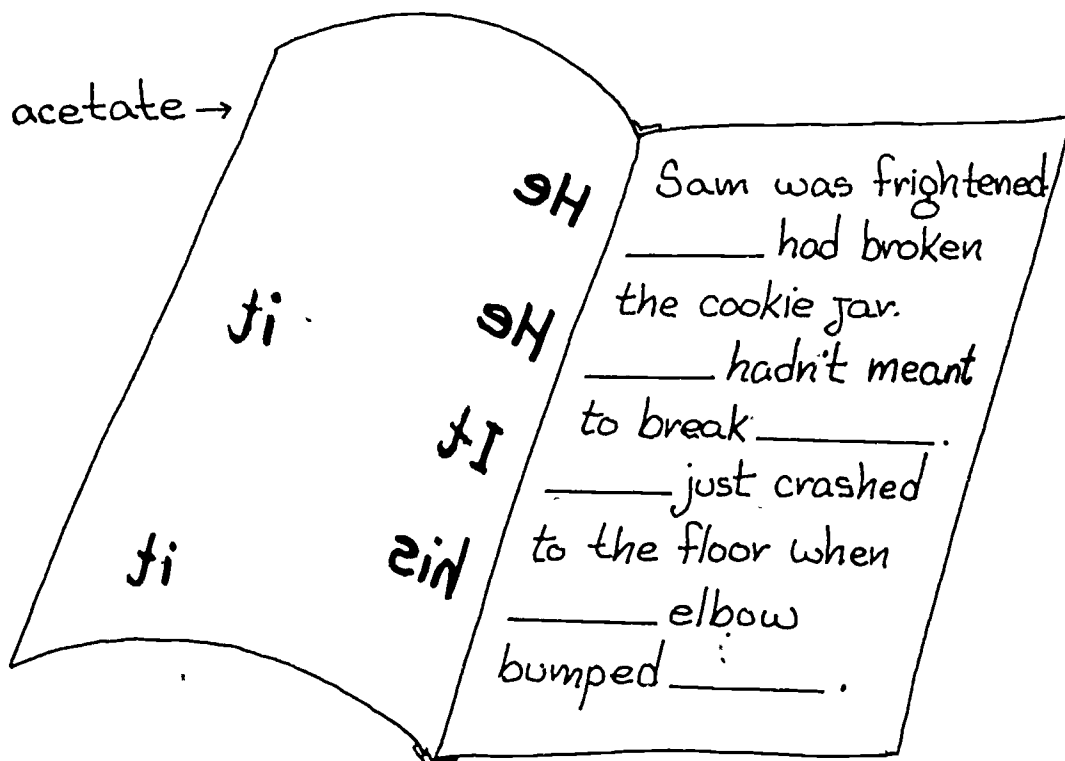 acetate →
He
it He
It
it his
Sam was frightened.
______ had broken
the cookie jar.
______ hadn't meant
to break ________.
______ just crashed
to the floor when
______ elbow
bumped ________.